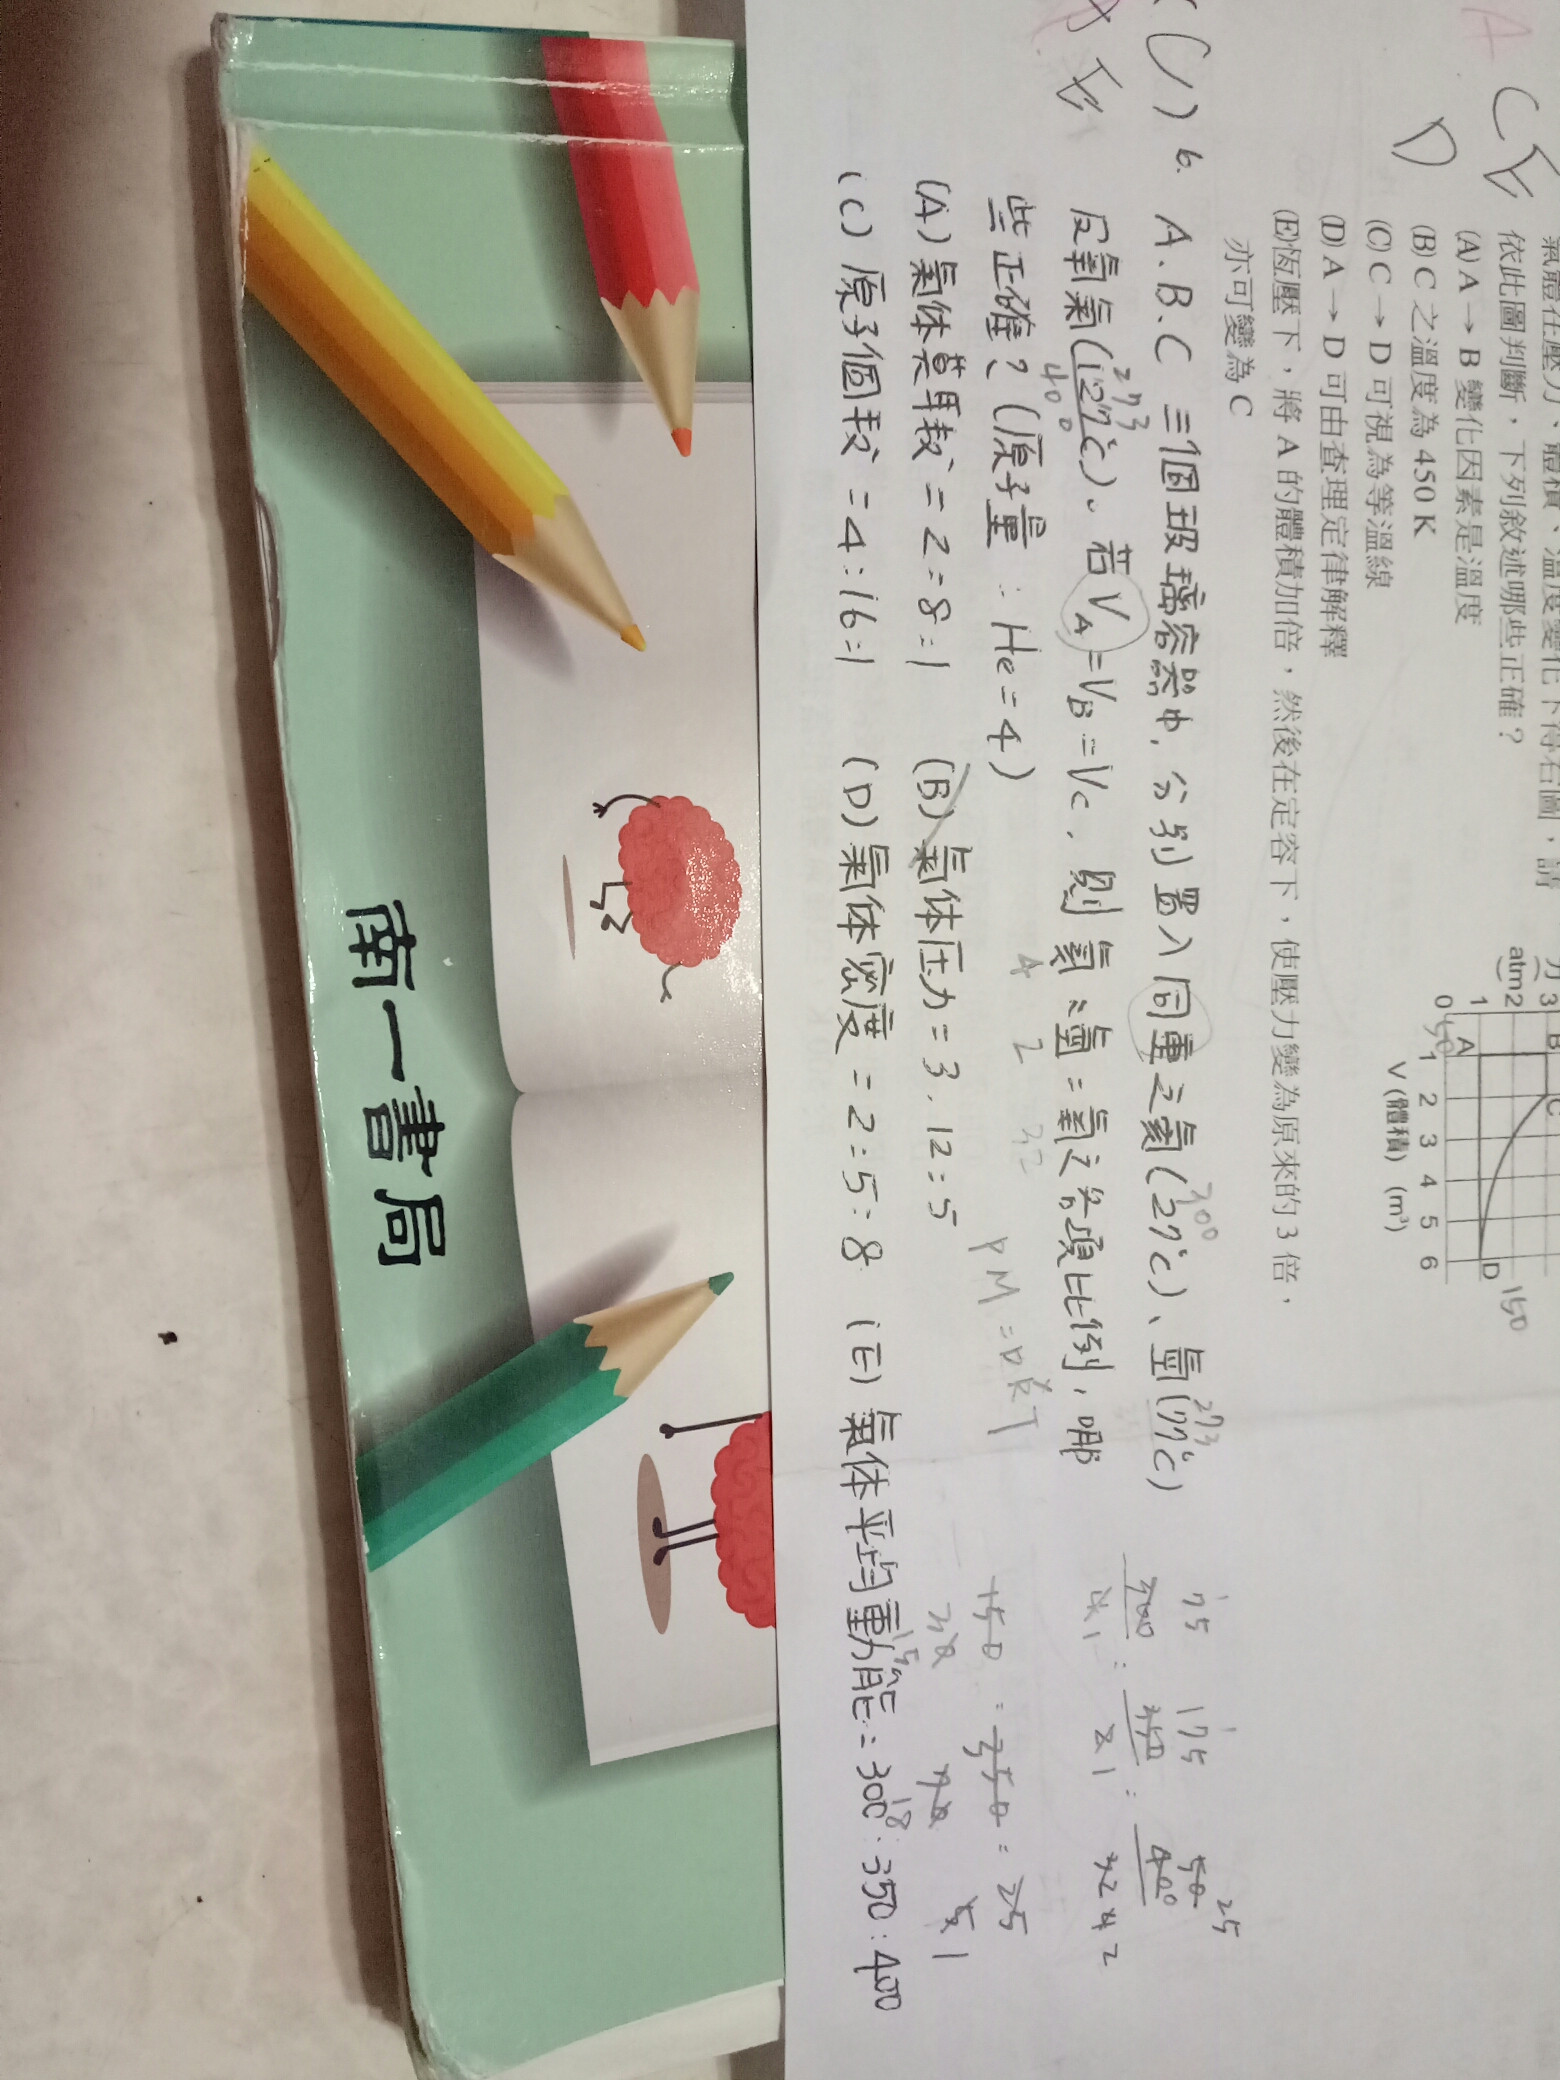 氣體在壓力、體積、溫度變化下得右圖，請
依此圖判斷，下列敘述哪些正確？
(A) A → B 變化因素是溫度
(B) C 之溫度為 450 K
(C) C → D 可視為等溫線
(D) A → D 可由查理定律解釋
(E)恆壓下，將 A 的體積加倍，然後在定容下，使壓力變為原來的 3 倍，
亦可變為 C
力
atm
3
2
1
0
A
B
C
D
1 2 3 4 5 6
V (體積) (m³)
150
C
D
6. A、B、C 三個玻璃容器中，分別置入同重之氦(27℃)、氫(77℃)
及氧氣(127℃)。若VA=VB=Vc，則氦:氫:氧之各項比例，哪
些正確？(原子量：He=4)
(A) 氣体莫耳数=2:8:1 (B) 氣体压力=3:12:5
(C) 原子個数=4:16:1 (D) 氣体密度=2:5:8 (E) 氣体平均動能=300:350:400
300
273
273
400
4 2 32
PM=DRT
75 175 50 25
300 : 350 : 400
4 1 2 1 32 4 2
150 : 350 : 25
南一書局